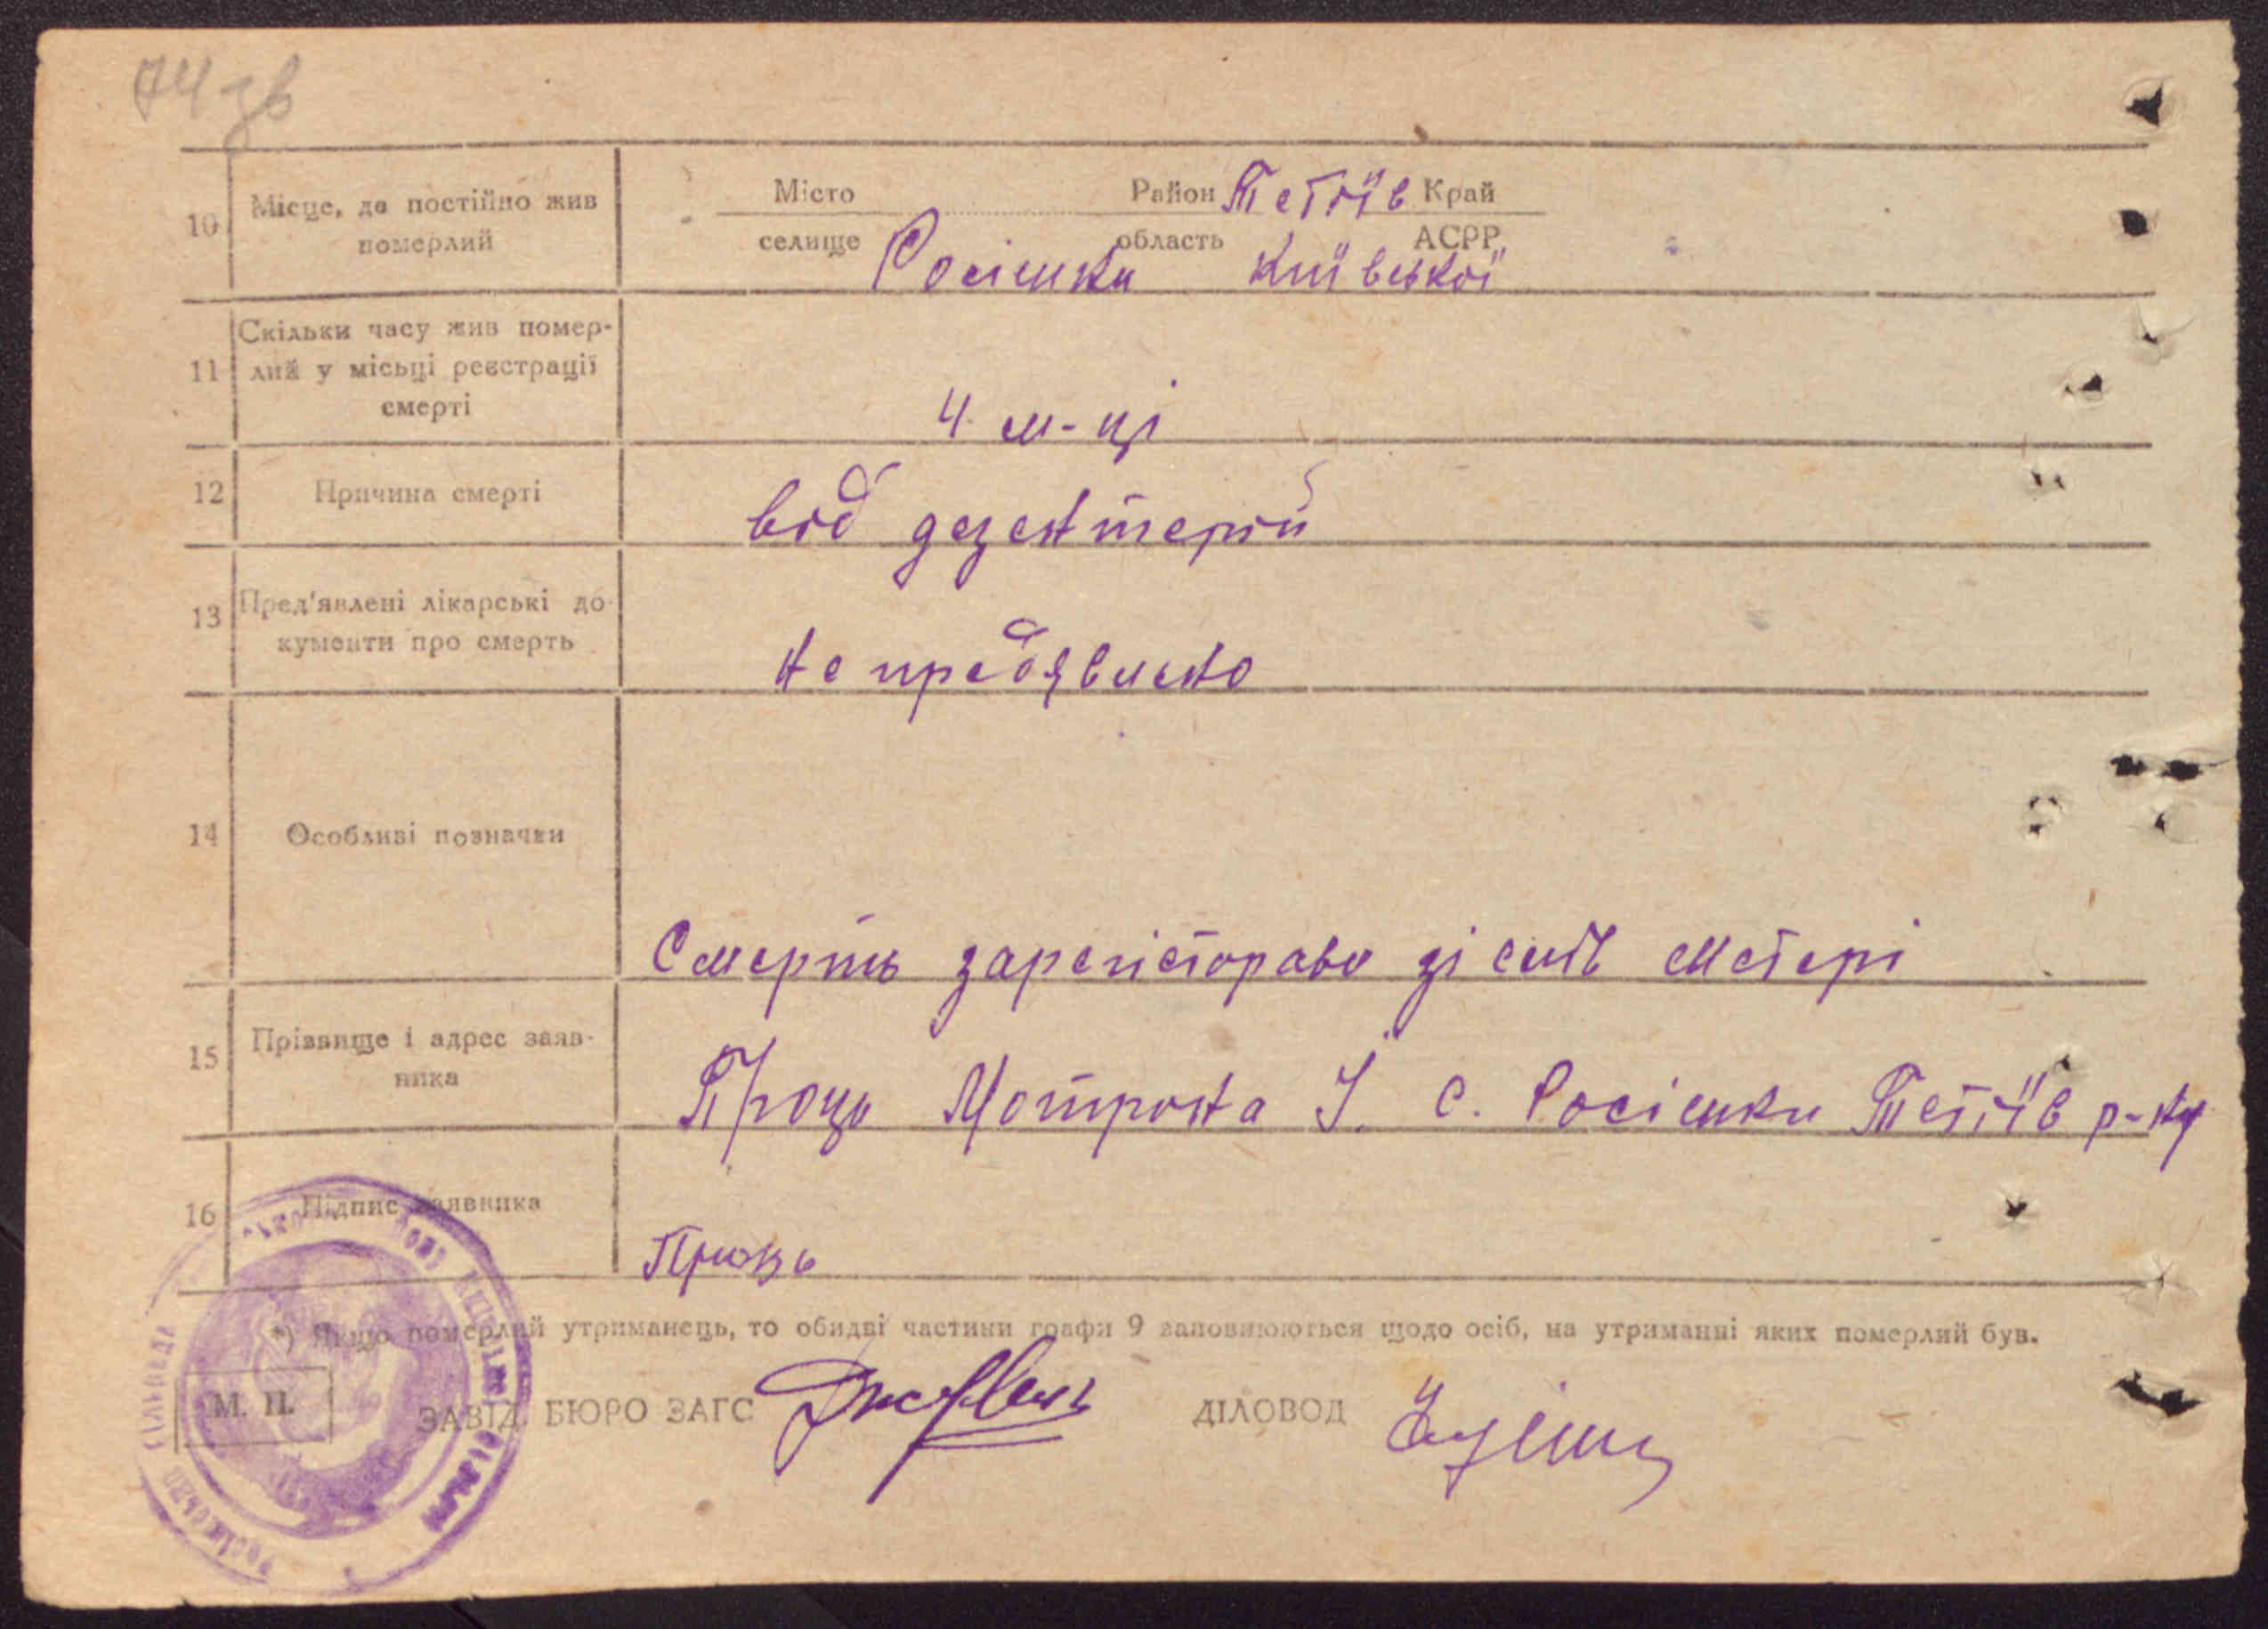 74 зв
10 Місце, де постійно жив померлий
Місто Район Тетіїв Край
селище Росішки область Київської АСРР
11 Скільки часу жив помер-
лий у місьці реєстрації
смерті
4 м-ці
12 Причина смерті від дезентерій
13 Пред'явлені лікарські до-
кументи про смерть
не предявлено
14 Особливі позначки
Смерть зарегісторава зі слів матері
15 Прізвище і адрес заяв-
ника
Проць Мотрона І. с. Росішки Тетіїв р-ну
16 Підпис заявника
*) Якщо померлий утриманець, то обидві частини графи 9 заповнюються щодо осіб, на утриманні яких померлий був.
М. П. ЗАВІД. БЮРО ЗАГС ДІЛОВОД